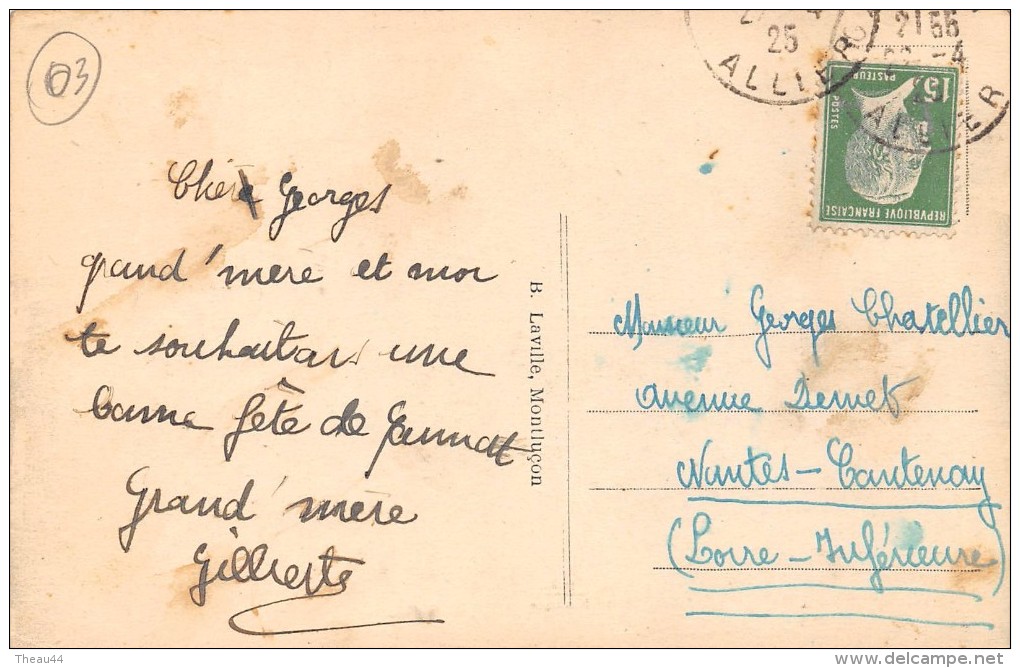 03
25
ALLIER
2155
22 -4
25
ALLIER
15c
PASTEUR
POSTES
REPVBLIQVE FRANÇAISE
Cher Georges
grand'mère et moi
te souhaitons une
bonne fête de Gannat
Grand'mère
Gilberte
B. Laville, Montluçon
Monsieur Georges Chatellier
avenue
Nantes-Cantenay
(Loire-Inférieure)
Theau44
delcampe.net